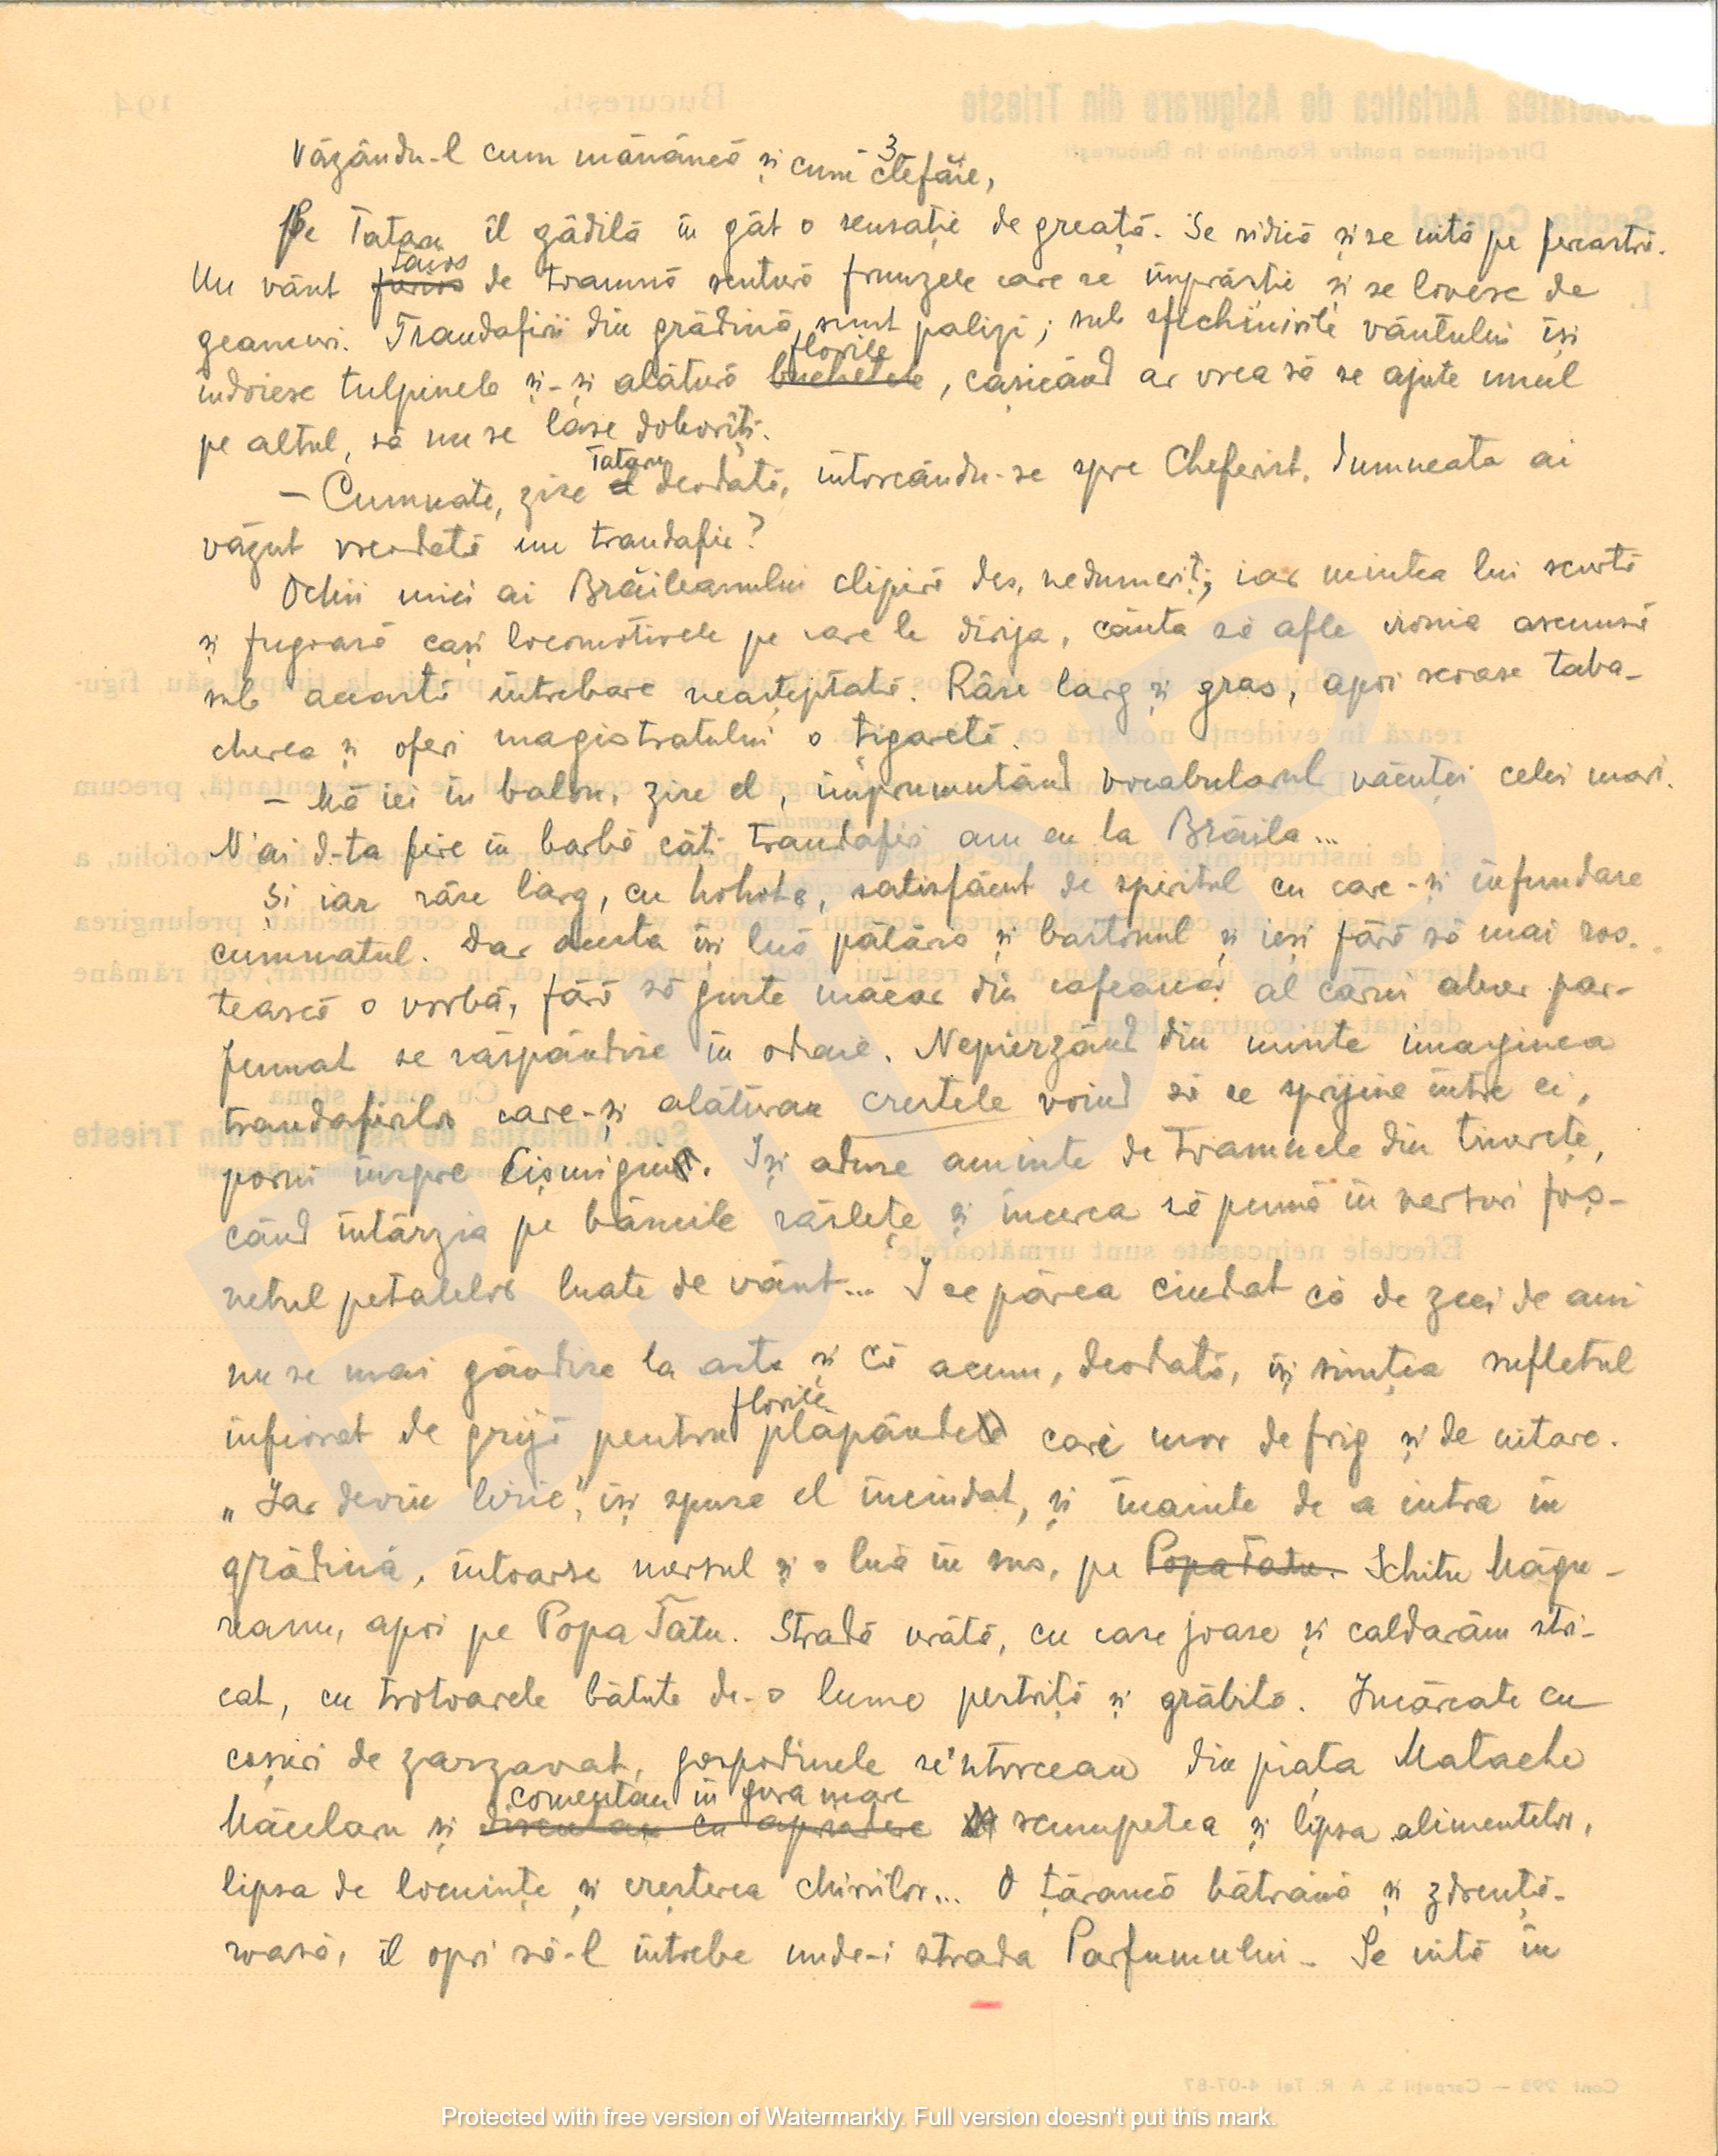 3
Văzându-l cum mănâncă și cum clefăie,
Pe Tataru îl gâdilă în gât o senzație de greață. Se ridică și se uită pe fereastră.
tăios
Un vânt furios de toamnă scutură frunzele care se împrăștie și se lovesc de
geamuri. Trandafirii din grădină, sunt palizi; sub sfichiuirile vântului își
florile
îndoiesc tulpinele și-și alătură buchetele, cașicând ar vrea să se ajute unul
pe altul, să nu se lase doborîți.
Tataru
– Cumnate, zise el deodată, întorcându-se spre Cheferist, dumneata ai
văzut vreodată un trandafir?
Ochii mici ai Brăileanului clipiră des, nedumeriți, iar mintea lui scurtă
și fugoasă cași locomotivele pe care le dirija, căuta să afle ironia ascunsă
sub această întrebare neașteptată. Râse larg și gras, apoi scoase taba-
cherea și oferi magistratului o țigaretă.
– Mă iei în balon, zise el, împrumutând vocabularul văcuței celei mari.
N'ai d-ta fire în barbă câți trandafiri am eu la Brăila...
Și iar râse larg, cu hohote, satisfăcut de spiritul cu care-și înfundase
cumnatul. Dar acesta își luă pălăria și bastonul și ieși fără să mai ros-
tească o vorbă, fără să guste măcar din cafeaua al cărui abur par-
fumat se răspândise în odaie. Nepierzând din minte imaginea
trandafirilor care-și alăturau crestele voind să se sprijine între ei,
porni înspre Cișmigiu. Iși aduse aminte de toamnele din tinerețe,
când întârzia pe băncile răslețe și încerca să pună în versuri foș-
netul petalelor luate de vânt... I se părea ciudat că de zeci de ani
nu se mai gândise la asta și că acum, deodată, își simțea sufletul
florile
înfiorat de grijă pentru plăpânde care mor de frig și de uitare.
„Iar devin liric", își spuse el înciudat, și înainte de a intra în
grădină, întoarse mersul și o luă în sus, pe Popa Tatu. Schitu Măgu-
reanu, apoi pe Popa Tatu. Stradă urâtă, cu case joase și caldarâm stri-
cat, cu trotoarele bătute de-o lume pestriță și grăbită. Incărcate cu
coșuri de zarzavat, gospodinele se'ntorceau din piața Matache
comentau în gura mare
Măcelaru și discutau cu aprindere scumpetea și lipsa alimentelor,
lipsa de locuințe și creșterea chiriilor... O țărancă bătrână și zdrențe-
roasă, îl opri să-l întrebe unde-i strada Parfumului. Se uită în
Protected with free version of Watermarkly. Full version doesn't put this mark.